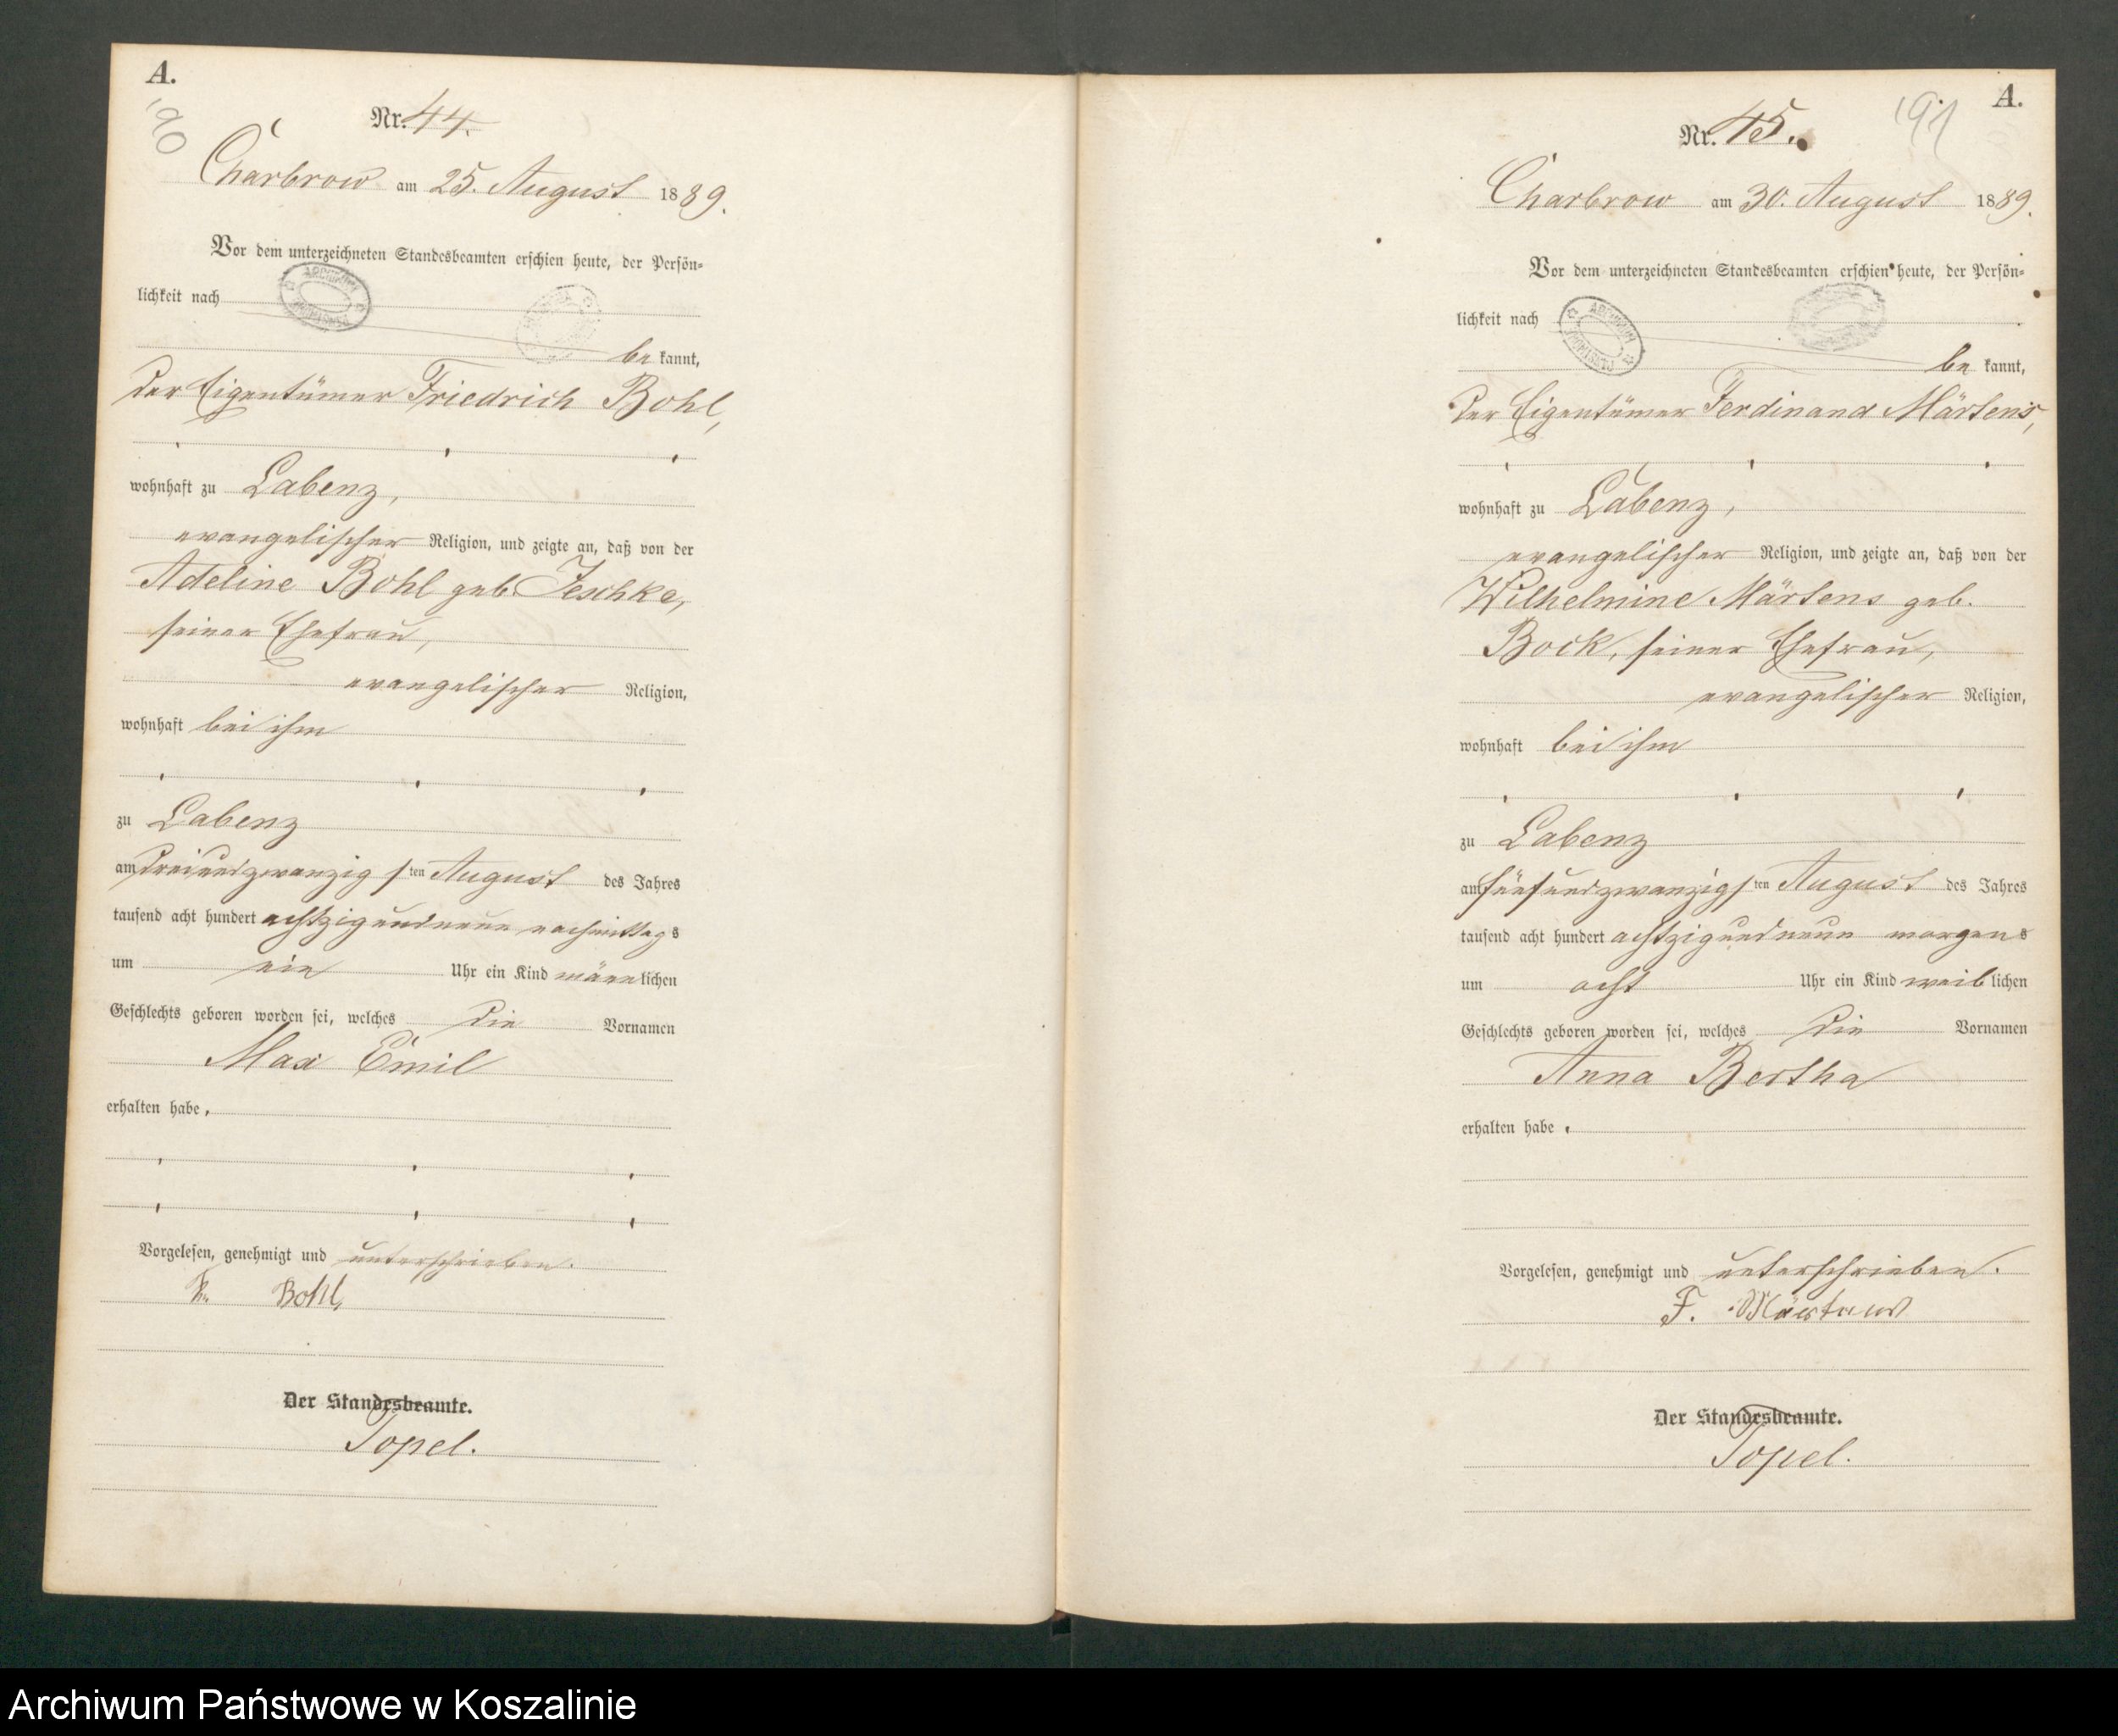 A.
190
Nr. 44.
Charbrow am 25. August 1889.
Vor dem unterzeichneten Standesbeamten erschien heute, der Persön-
lichkeit nach
be kannt,
der Eigentümer Friedrich Bohl,
wohnhaft zu Labenz,
evangelischer Religion, und zeigte an, daß von der
Adeline Bohl geb. Jeschke,
seiner Ehefrau,
evangelischer Religion,
wohnhaft bei ihm
zu Labenz
am dreiundzwanzigsten August des Jahres
tausend acht hundert achtzigundneun nachmittags
um ein Uhr ein Kind männlichen
Geschlechts geboren worden sei, welches die Vornamen
Max Emil
erhalten habe.
Vorgelesen, genehmigt und unterschrieben.
Bohl
Der Standesbeamte.
Topel.
A.
191
Nr. 45.
Charbrow am 30. August 1889.
Vor dem unterzeichneten Standesbeamten erschien heute, der Persön-
lichkeit nach
be kannt,
der Eigentümer Ferdinand Märtens,
wohnhaft zu Labenz,
evangelischer Religion, und zeigte an, daß von der
Wilhelmine Märtens geb.
Bock, seiner Ehefrau,
evangelischer Religion,
wohnhaft bei ihm
zu Labenz
am fünfundzwanzigsten August des Jahres
tausend acht hundert achtzigundneun morgens
um acht Uhr ein Kind weiblichen
Geschlechts geboren worden sei, welches die Vornamen
Anna Bertha
erhalten habe.
Vorgelesen, genehmigt und unterschrieben.
F. Märtens
Der Standesbeamte.
Topel.
Archiwum Państwowe w Koszalinie